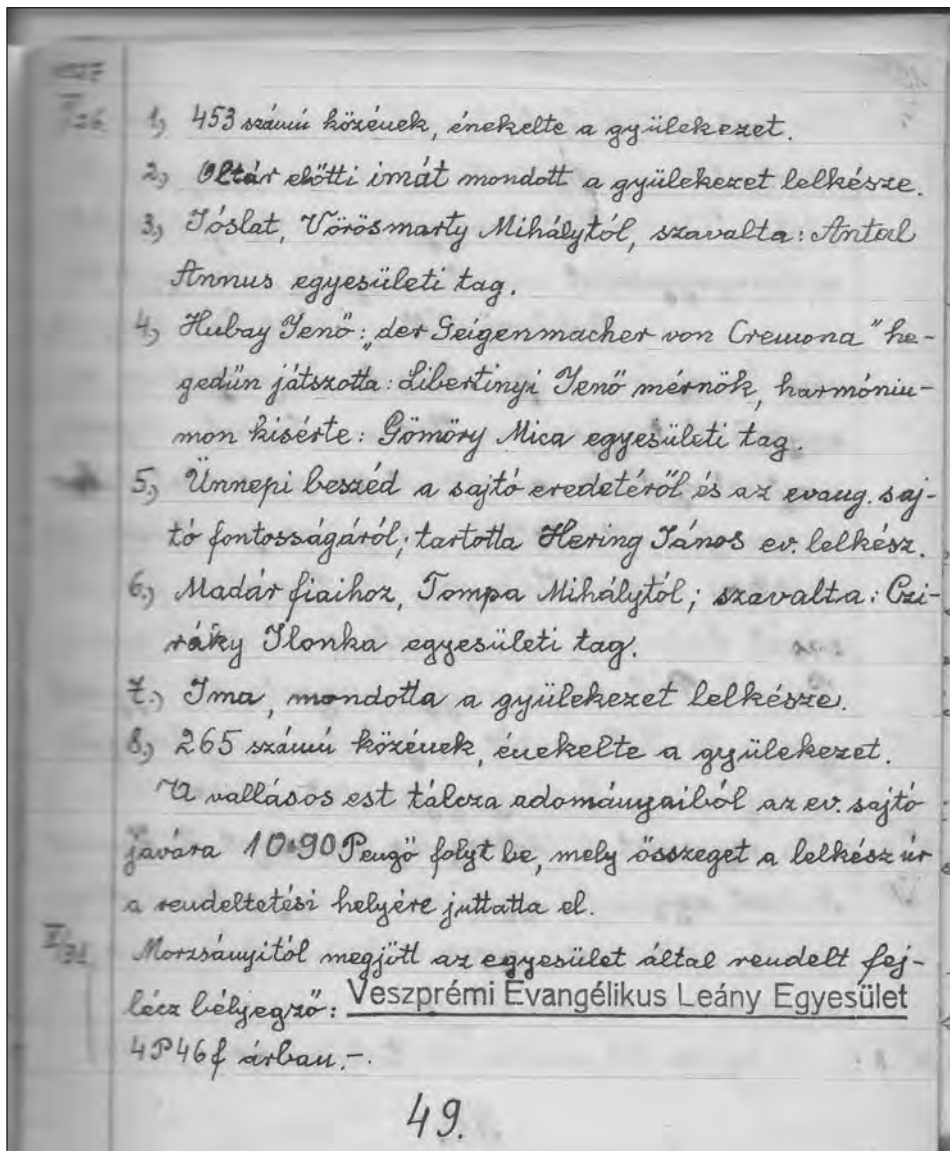 1927
1, 453 számú közének, énekelte a gyülekezet.
2, Oltár előtti imát mondott a gyülekezet lelkésze.
3, Jóslat, Vörösmarty Mihálytól, szavalta: Antal
Annus egyesületi tag.
4, Hubay Jenő: „der Geigenmacher von Cremona" he-
gedün játszotta: Libertinyi Jenő mérnök, harmóniu-
mon kisérte: Gömöry Mica egyesületi tag.
5, Ünnepi beszéd a sajtó eredetéről és az evang. saj-
tó fontosságáról; tartotta Hering János ev. lelkész.
6, Madár fiaihoz, Tompa Mihálytól; szavalta: Czi-
ráky Ilonka egyesületi tag.
7.) Ima, mondotta a gyülekezet lelkésze.
8, 265 számú közének, énekelte a gyülekezet.
A vallásos est tálcza adományaiból az ev. sajtó
javára 10·90 Pengő folyt be, mely összeget a lelkész úr
a rendeltetési helyére juttatta el.
Morzsányitól megjött az egyesület által rendelt fej-
lécz bélyegző: Veszprémi Evangélikus Leány Egyesület
4P46f árban.-.
49.